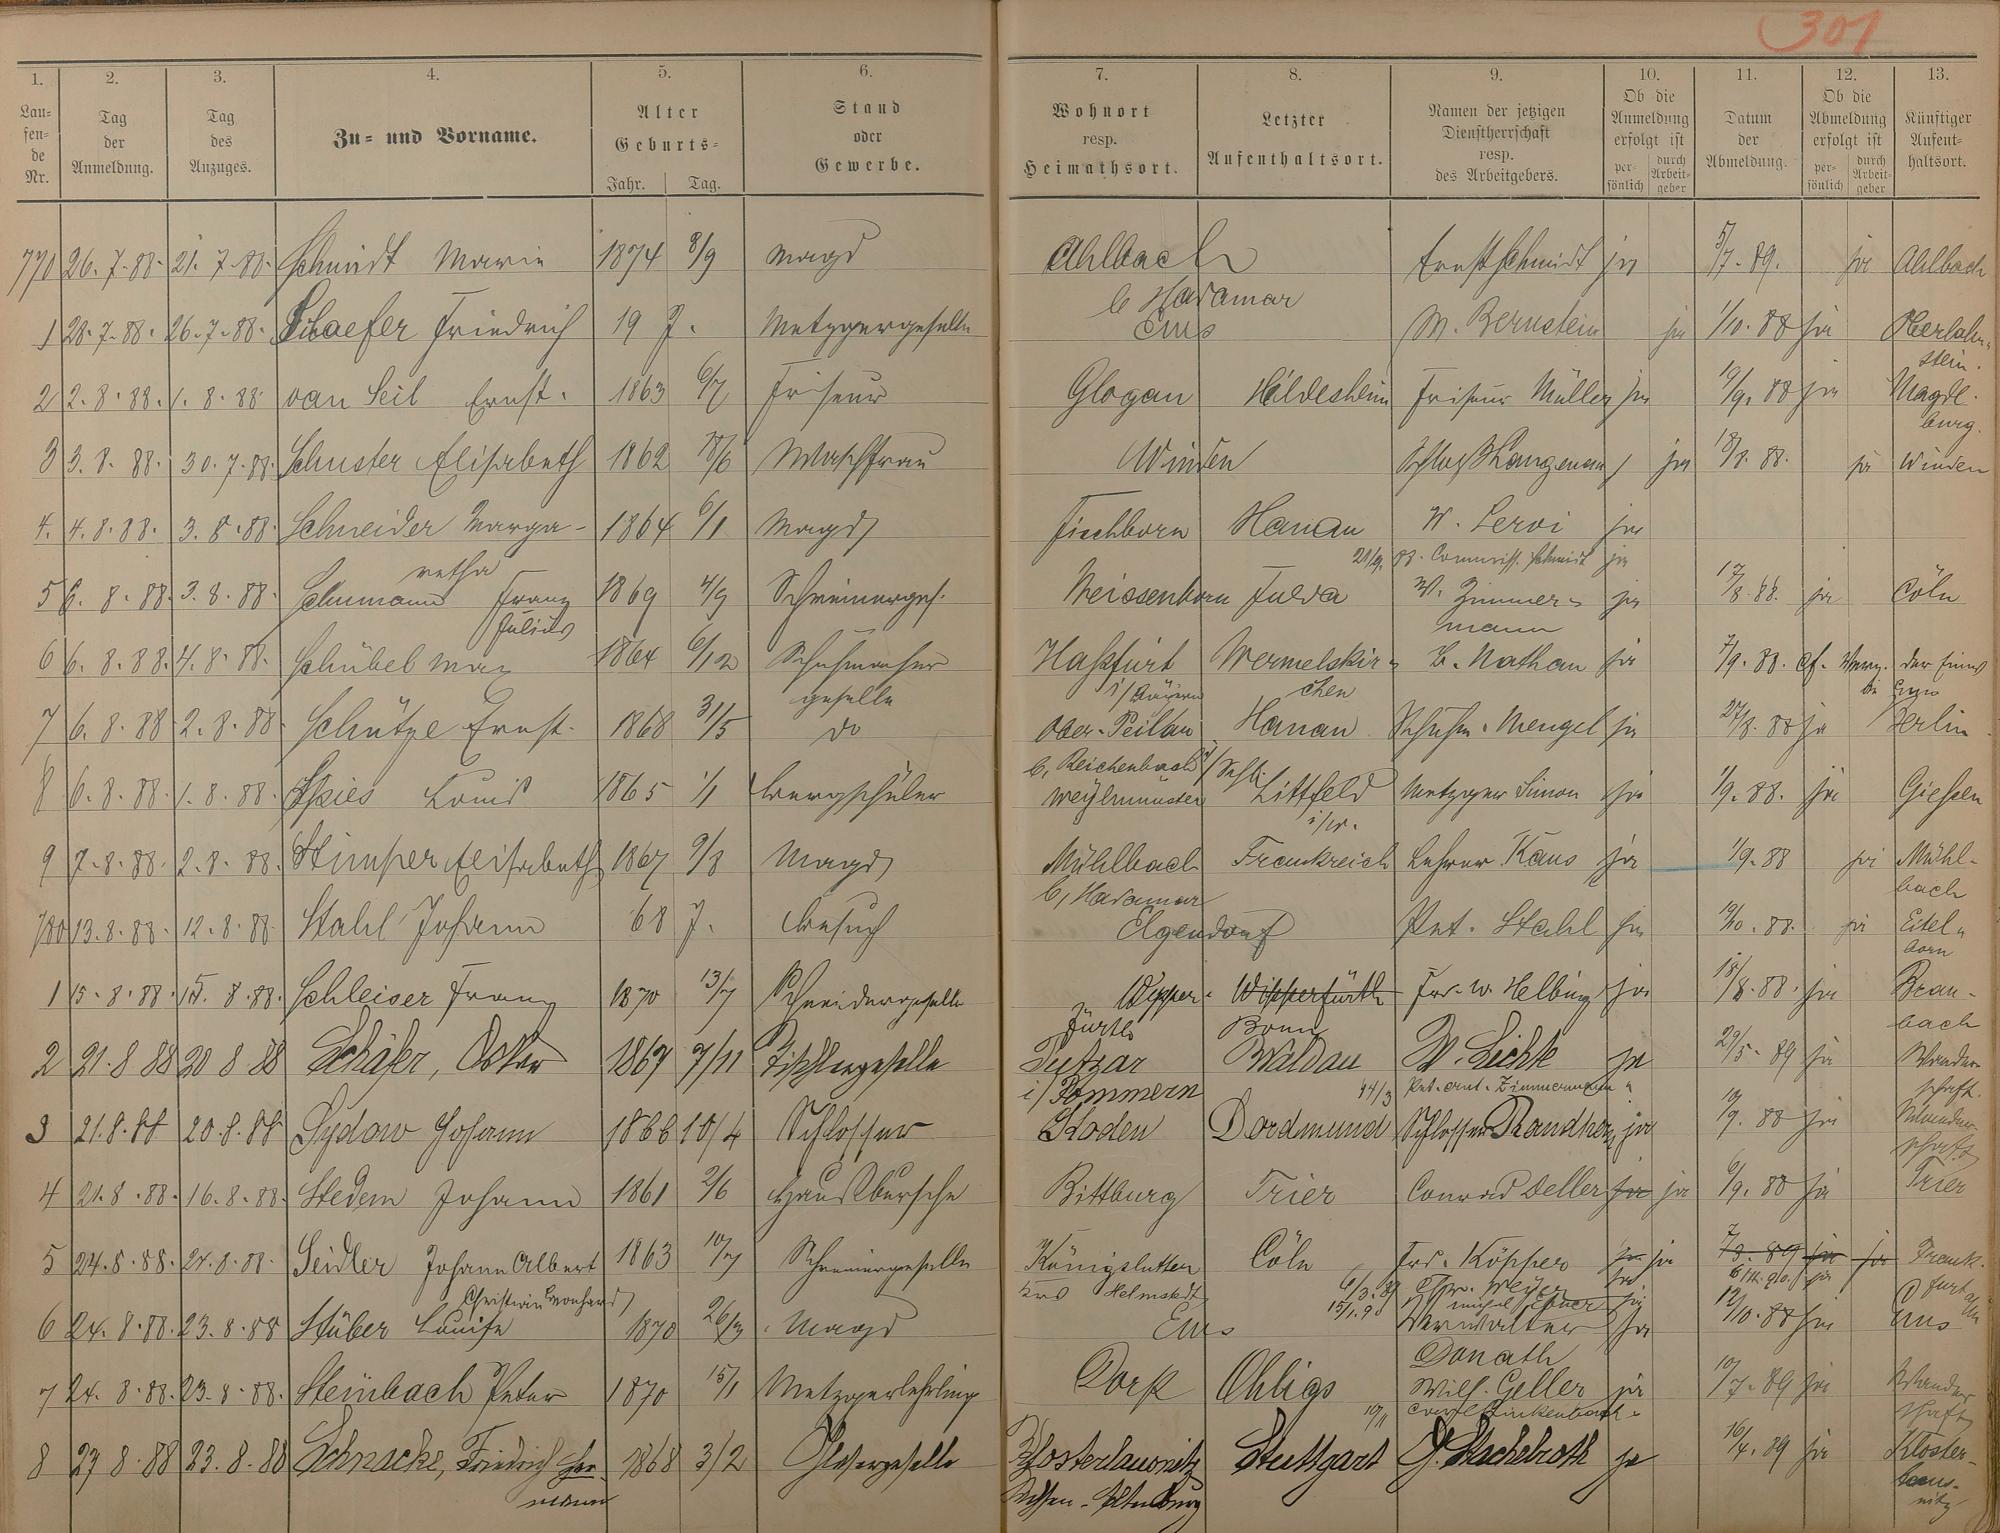 301
1. 2. 3. 4. 5. 6. 7. 8. 9. 10. 11. 12. 13.
Laufende Nr. Tag der Anmeldung. Tag des Anzuges. Zu- und Vorname. Alter Geburts- Jahr. Tag. Stand oder Gewerbe. Wohnort resp. Heimathsort. Letzter Aufenthaltsort. Namen der jetzigen Dienstherrschaft resp. des Arbeitgebers. Ob die Anmeldung erfolgt ist persönlich durch Arbeitgeber Datum der Abmeldung. Ob die Abmeldung erfolgt ist persönlich durch Arbeitgeber Künftiger Aufenthaltsort.
770 26.7.88. 21.7.88. Schmidt Marie 1874 8/9 Magd Ahlbach b Hadamar Ernst Schmidt ja 5/7.89. ja Ahlbach
1 28.7.88. 26.7.88. Schaefer Friedrich 19 J. Metzgergeselle Ems M. Bernstein ja 1/10.88 ja Oberlahnstein.
2 2.8.88. 1.8.88 van Seil Ernst. 1863 6/7 Friseur Glogau Hildesheim Friseur Müller ja 19/9.88 ja Magdeburg.
3 3.8.88. 30.7.88. Schuster Elisabeth 1862 18/6 Waschfrau Winden ja 18/8.88. ja Winden
4. 4.8.88. 3.8.88. Schneider Margaretha 1864 6/1 Magd Fischborn Hanau W. Leroi ja
21/9.88. Commiss. Schmidt ja
5 6.8.88. 3.8.88. Schumann Franz Julius 1869 4/9 Schreinerges. Weissenborn Fulda W. Zimmermann ja 17/8.88. ja Cöln
6 6.8.88. 4.8.88. Schübel Max 1864 6/12 Schuhmachergeselle Haßfurt i/Bayern Wermelskirchen B. Nathan ja 7/9.88. cf. Ems
7 6.8.88. 2.8.88. Schütze Ernst. 1868 31/5 do Ober-Peilau b, Reichenbach i/Schl. Hanau Schuhm. Mengel ja 27/8.88 ja Berlin
8 6.8.88. 1.8.88. Spies Louis 1865 1/1 Bergschüler Weylmünster Littfeld i/W. Metzger Simon ja 1/9.88. ja Giessen
9 7.8.88. 2.8.88. Stimper Elisabeth 1867 9/8 Magd Mühlbach b, Hadamar Frankreich Lehrer Kaus ja 1/9.88 ja Mühlbach
780 13.8.88. 12.8.88. Stahl Johann 68 J. Besuch Elgendorf Pet. Stahl ja 19/10.88. ja Eitelborn
1 15.8.88. 15.8.88. Schleiser Franz 1870 13/7 Schneidergeselle Wipperfürth Wipperfürth Bonn Fr. W. Helbing ja 18/8.88. ja Braubach
2 21.8 88 20 8 88 Schäfer, Oskar 1867 7/11 Tischlergeselle Putzar i/Pommern Waldau W. Lichte ja 29/5.89 ja Wanderschaft.
14/3 Zimmermann
3 21.8.88 20.8.88 Sydow Johann 1866 10/4 Schlosser Koden Dordmund Schlosser ja 10/9.88 ja Wanderschaft
4 21.8.88. 16.8.88. Stedem Johann 1861 2/6 Hausbursche Bittburg Trier Conrad Deller ja ja 6/9.88 ja Trier
5 24.8.88. 24.8.88. Seidler Johann Albert Christian Leonhard 1863 10/7 Schreinergeselle Königslutter Krs Helmstedt Cöln Frd. Köpper ja ja 7/3.89 ja ja Frankfurt a/M
6/3.89 Chr. Meyer ja
6 24.8.88. 23.8.88 Stüber Louise 1870 26/3 Magd Ems Verwalter Donath ja 12/10.88 ja Ems
7 24.8.88. 23.8.88. Steinbach Peter 1870 15/1 Metzgerlehrling Dorp Ohligs Wilh. Geller ja 10/7.89 ja Wanderschaft
8 27 8 88 23.8.88 Schnacke, Friedrich Hermann 1868 3/2 Glasergeselle Klosterlausnitz Sachsen-Altenburg Stuttgart G. Stachelroth ja 16/4.89 ja Klosterlausnitz